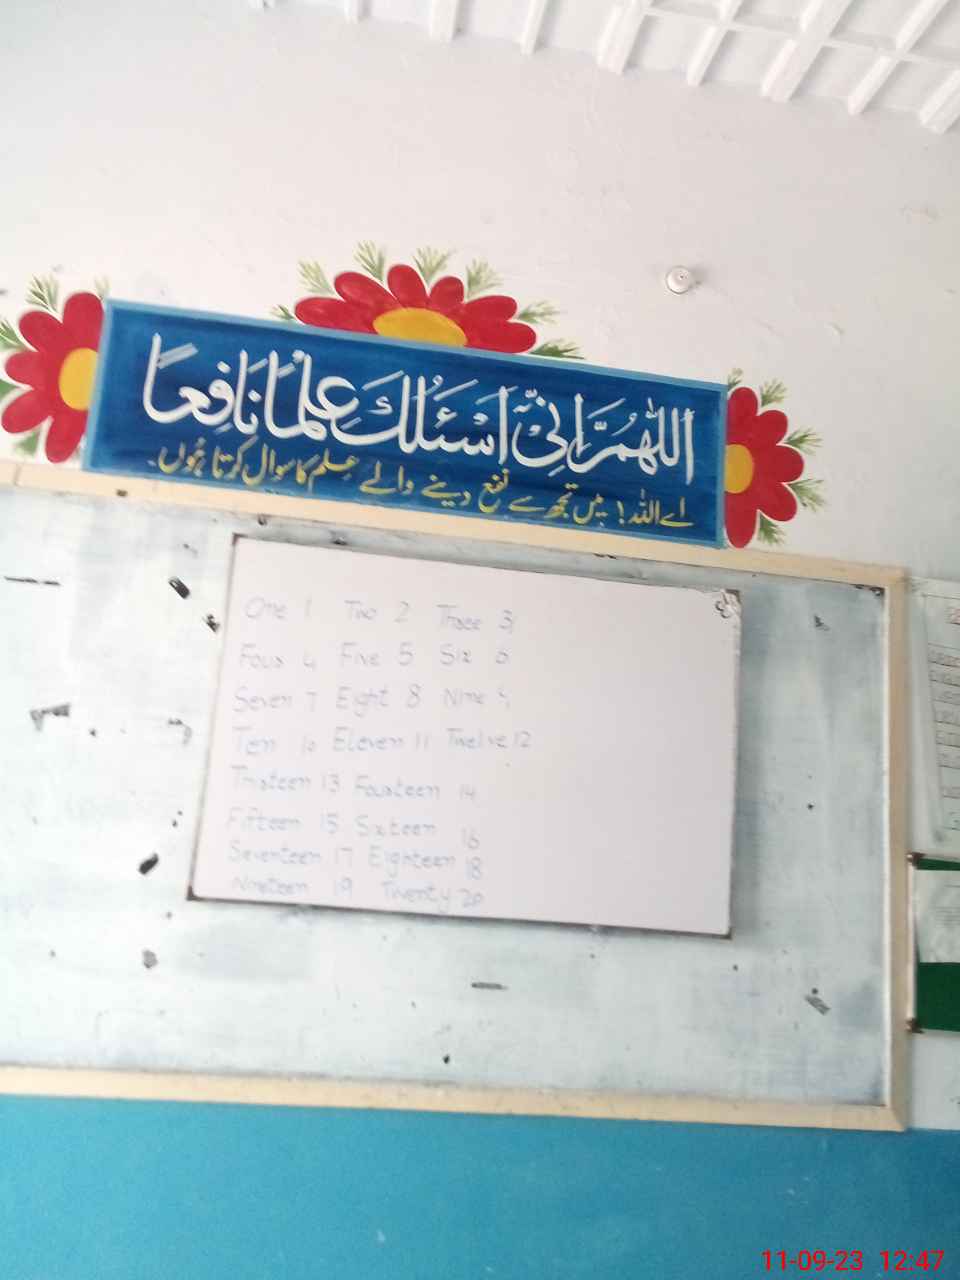 اَللّٰهُمَّ اِنِّیْ اَسْئَلُكَ عِلْمًا نَافِعًا
اے اللہ! میں تجھ سے نفع دینے والے علم کا سوال کرتا ہُوں۔
One 1 Two 2 Three 3
Four 4 Five 5 Six 6
Seven 7 Eight 8 Nine 9
Ten 10 Eleven 11 Twelve 12
Thirteen 13 Fourteen 14
Fifteen 15 Sixteen 16
Seventeen 17 Eighteen 18
Nineteen 19 Twenty 20
11-09-23 12:47